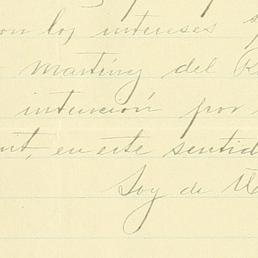 on los intereses
Martínz del R
intención por
en este sentid
Soy de U